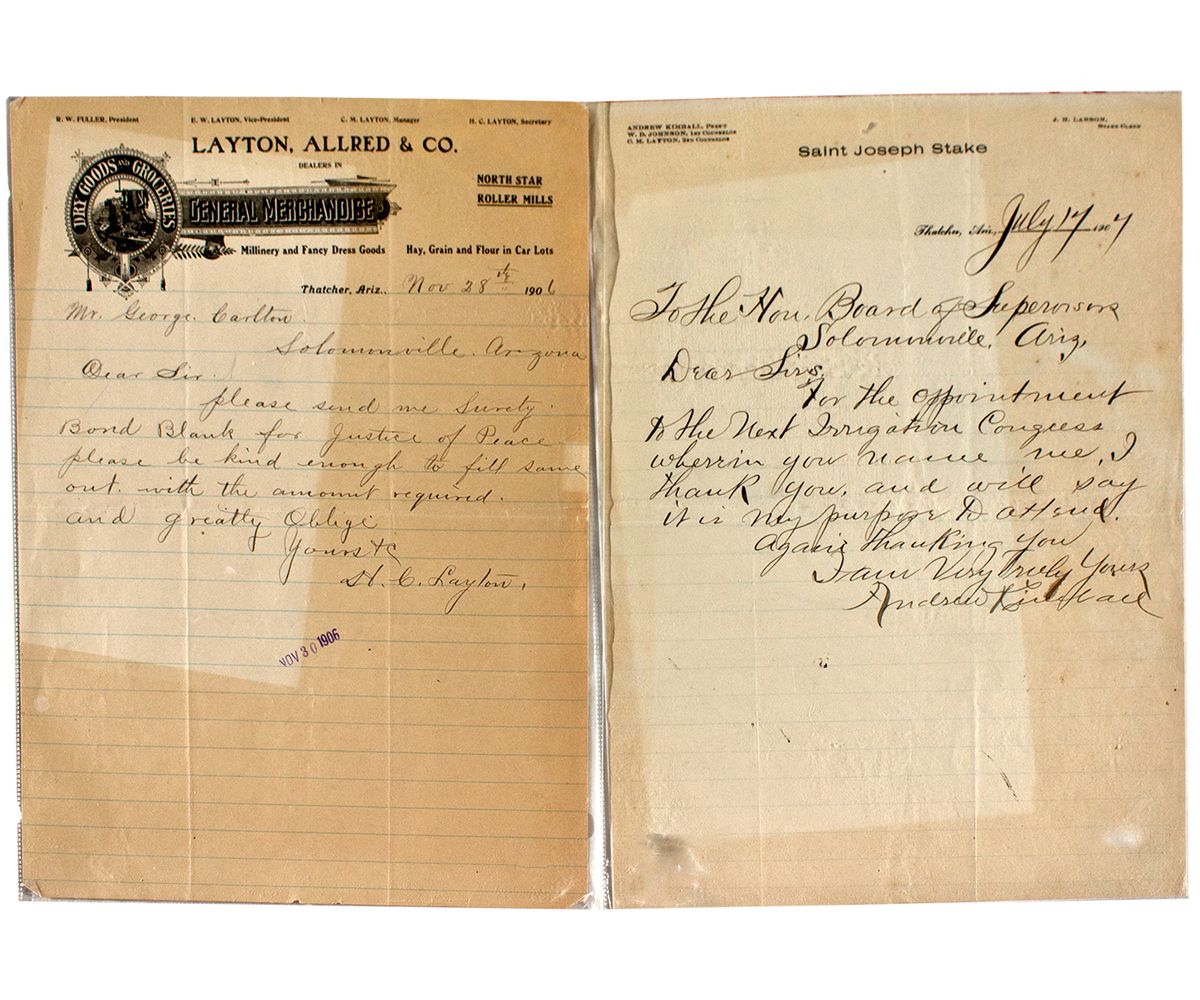 R. W. FULLER, President E. W. LAYTON, Vice-President C. M. LAYTON, Manager H. C. LAYTON, Secretary
LAYTON, ALLRED & CO.
DEALERS IN
DRY GOODS AND GROCERIES
GENERAL MERCHANDISE
NORTH STAR
ROLLER MILLS
Millinery and Fancy Dress Goods Hay, Grain and Flour in Car Lots
Thatcher, Ariz., Nov 28th 1906
Mr. George. Carlton.
Solomonville. Arizona
Dear Sir.
please send me Surety
Bond Blank for Justice of Peace
please be kind enough to fill same
out. with the amount required.
and greatly Oblige
Yours &c
H. C. Layton.
NOV 30 1906
ANDREW KIMBALL, PRES'T
W. D. JOHNSON, 1ST COUNSELOR
C. M. LAYTON, 2ND COUNSELOR
J. H. LARSON,
STAKE CLERK
Saint Joseph Stake
Thatcher, Ariz., July 17 1907
To the Hon. Board of Supervisors
Solomonville, Ariz,
Dear Sirs,
For the appointment
to the Next Irrigation Congress
wherein you name me, I
thank you, and will say
it is my purpose to attend.
Again thanking you
I am Very Truly Yours
Andrew Kimball